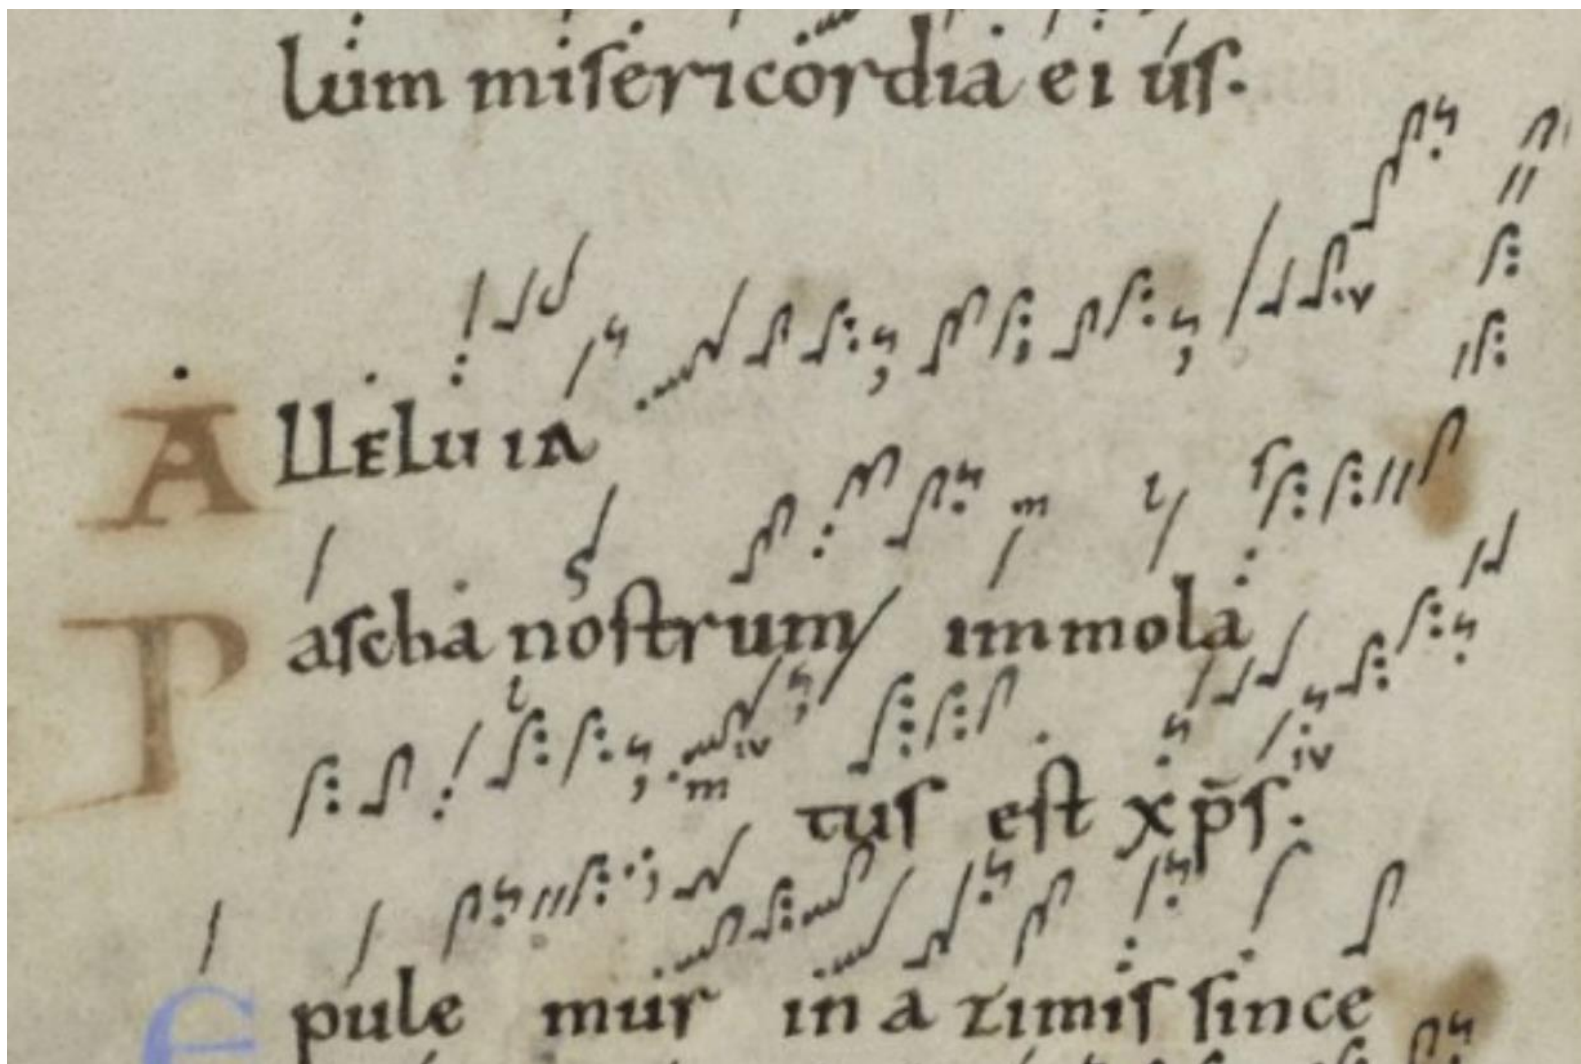 lum misericordia ei us.
ALLELU IA
Pascha nostrum immola
tus est xp̄s.
Epule mur in a zimis since